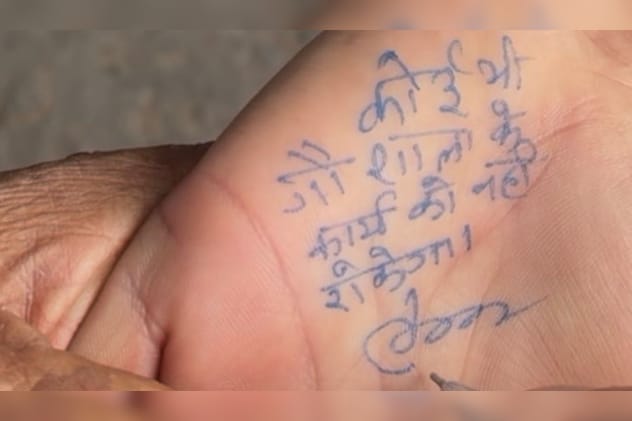 कोई भी
गौ शाला के
कार्य को नहीं
रोकेगा।